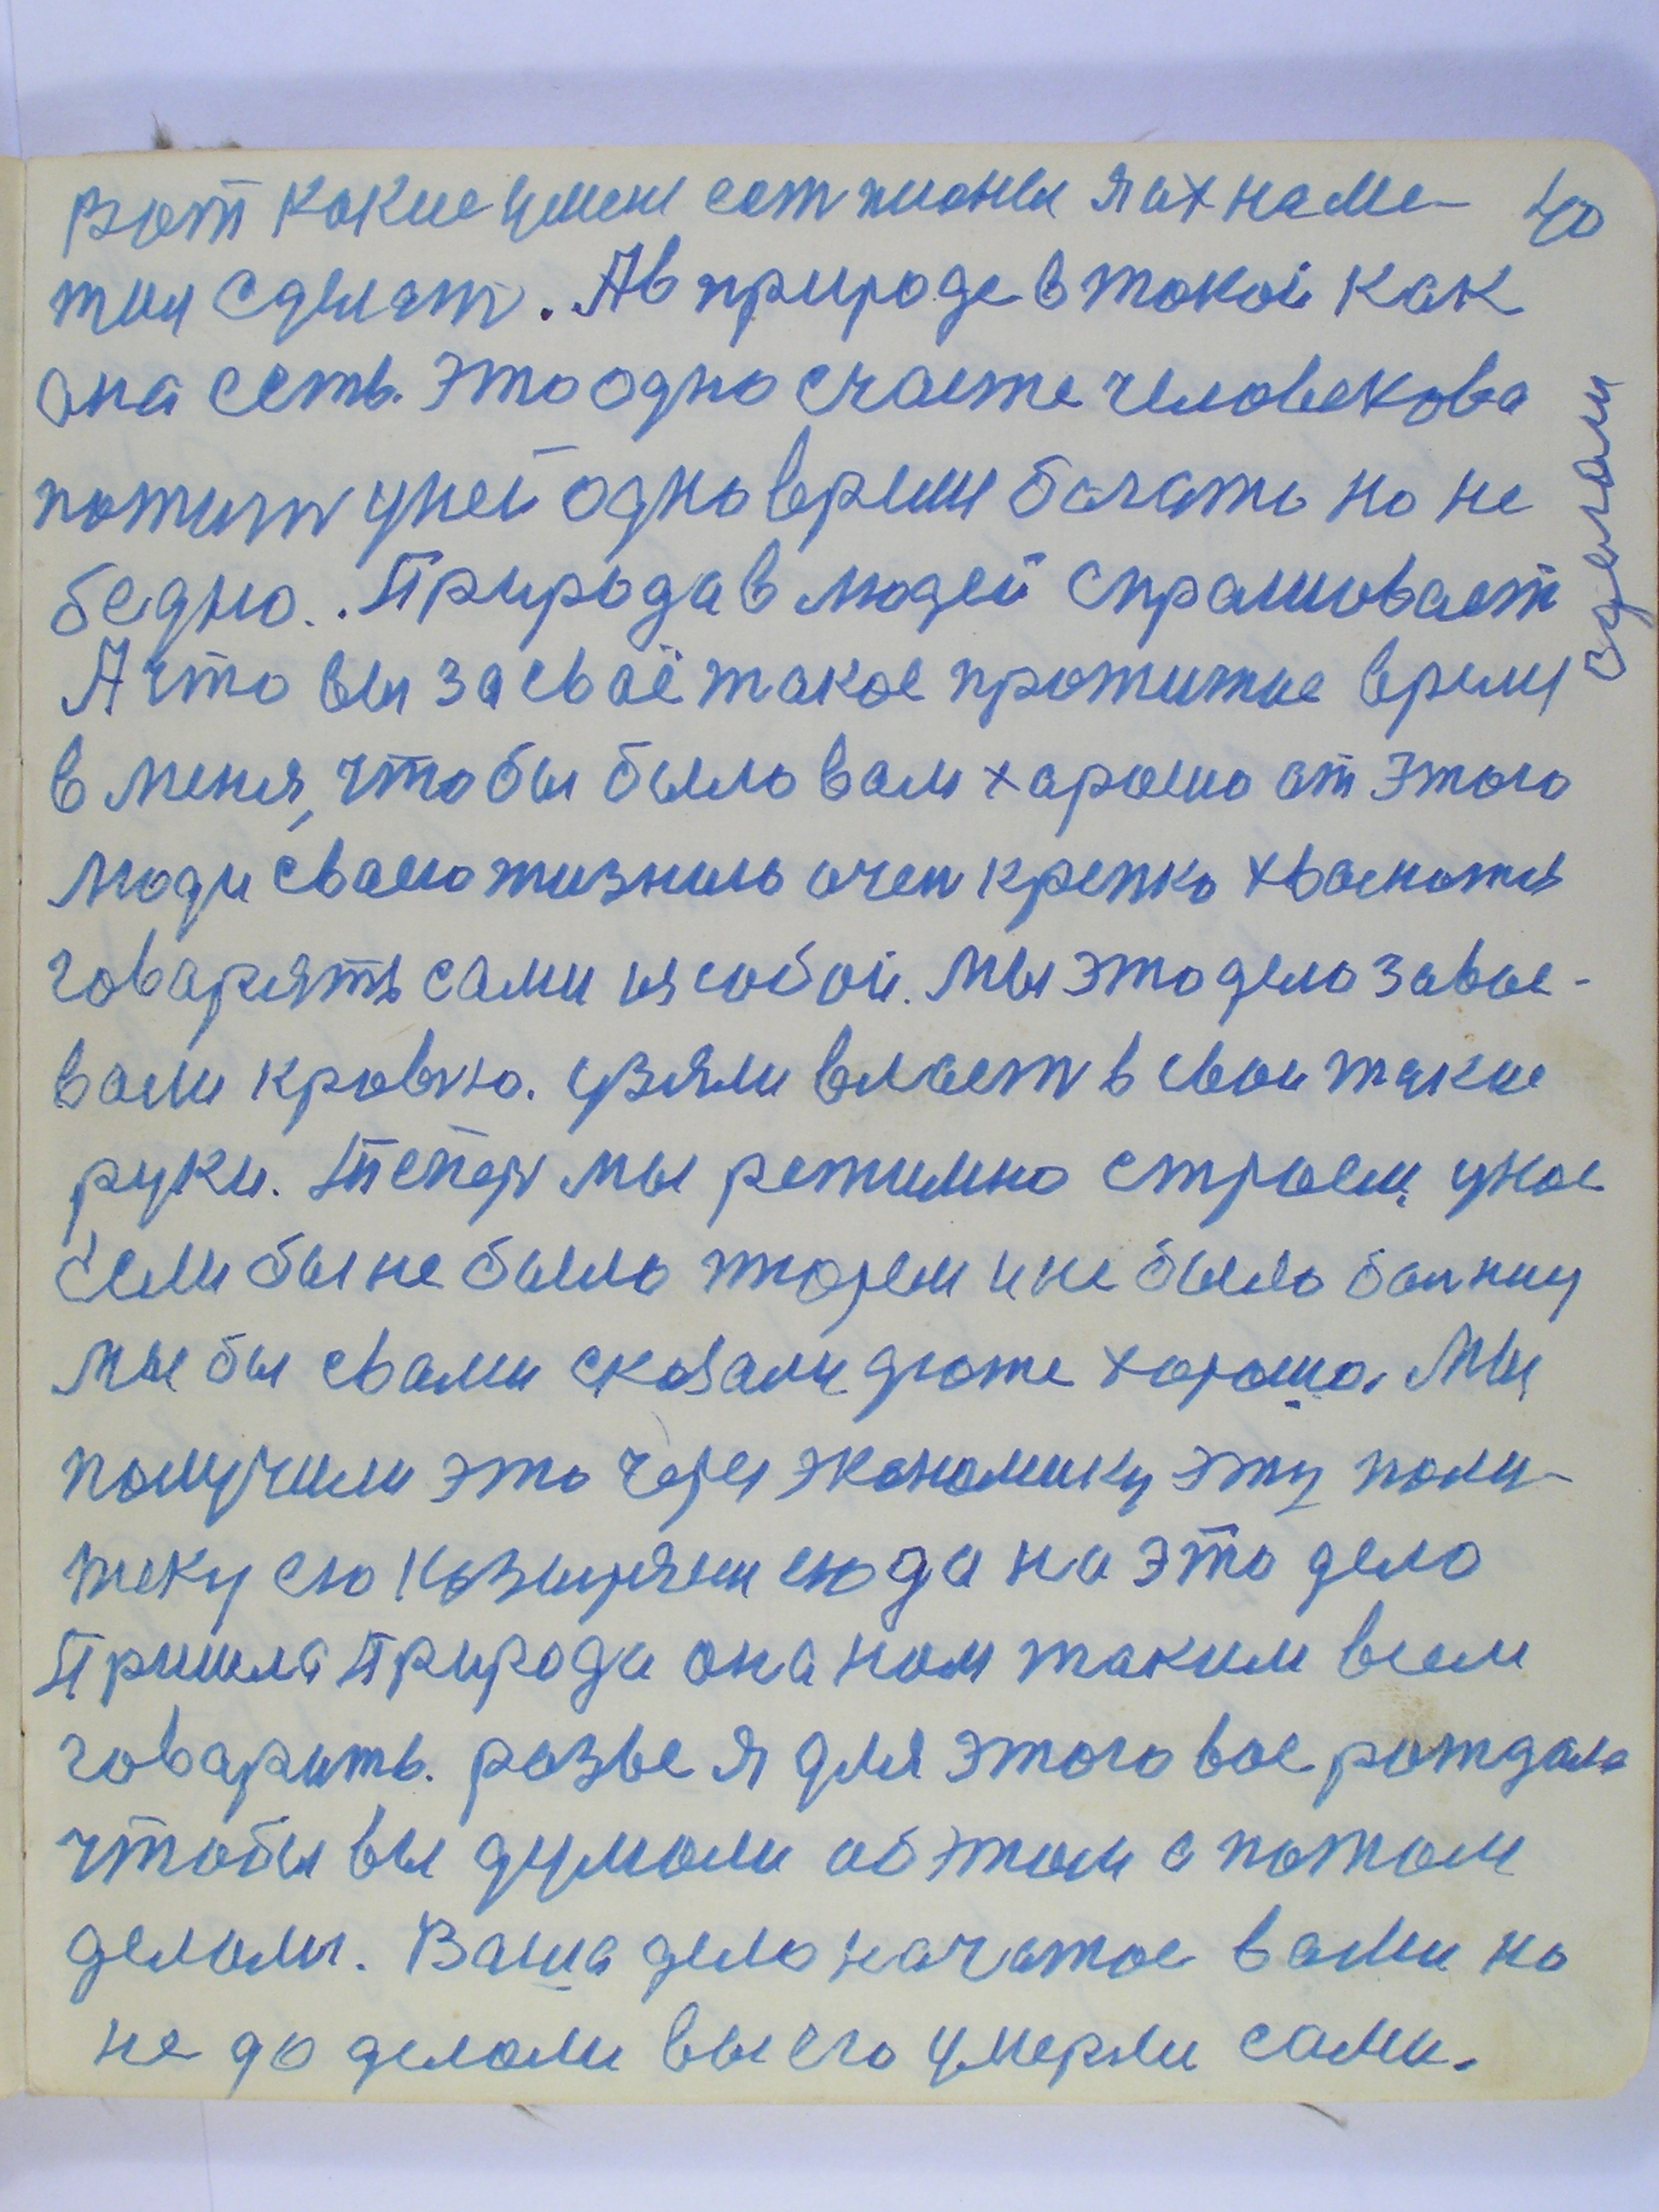 вот какие умени ест планы я их наме- 40
тил сделат. А в природе в такой как
она есть. Это одно счасте человекова
пожит у ней одно время богато но не
бедно.. Природа в людей спрашивает
А что вы за своё такое прожитие время сделали
в меня, чтобы было вам харошо от этого
люди сваею жизнию очен крепко хвалются
говарять сами из собой. Мы это дело завое-
вали кровью. узяли власт в свои такие
руки. Тепер мы режимно строем, у нас
Если бы не было тюрем и не было болниц
мы бы свами сказали дюже хорошо. Мы
получили это через экономику эту поли-
теку ею козыряем сюда на это дело
Пришла Природа она нам таким всем
говарить. разве я для этого вас рождала
чтобы вы думали об этом а потом
делали. Ваша дело начатое вами но
не до делали вы его умерли сами.